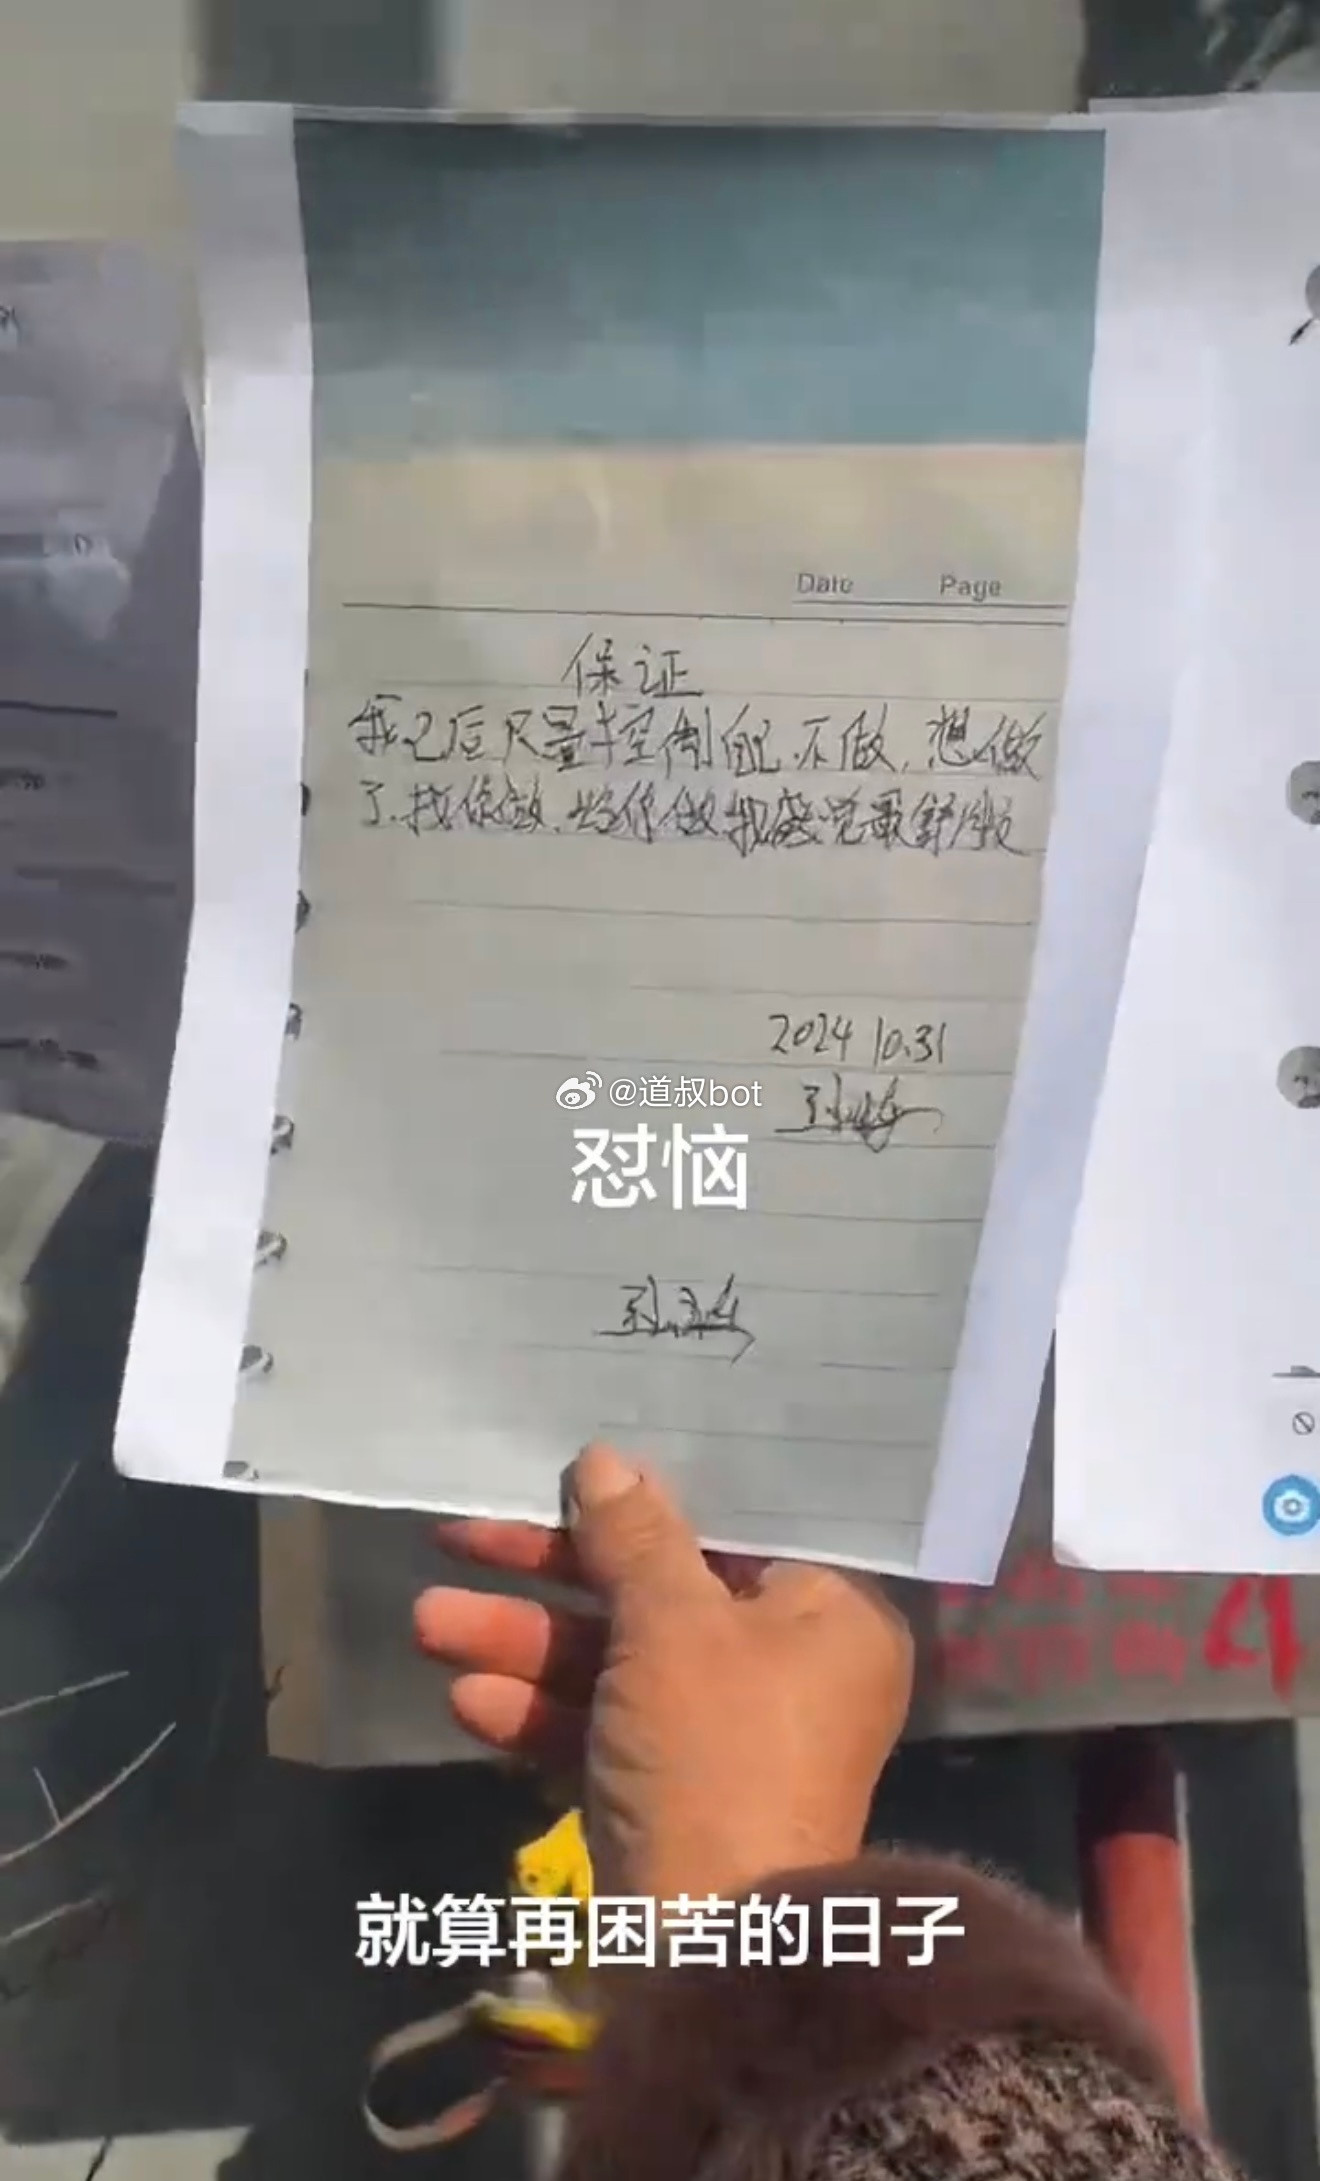 Date Page
保证
我已后尺量控制自己不做，想做
了.找你做.我感觉最舒服
2024 10.31
@道叔bot
怼恼
就算再困苦的日子
4